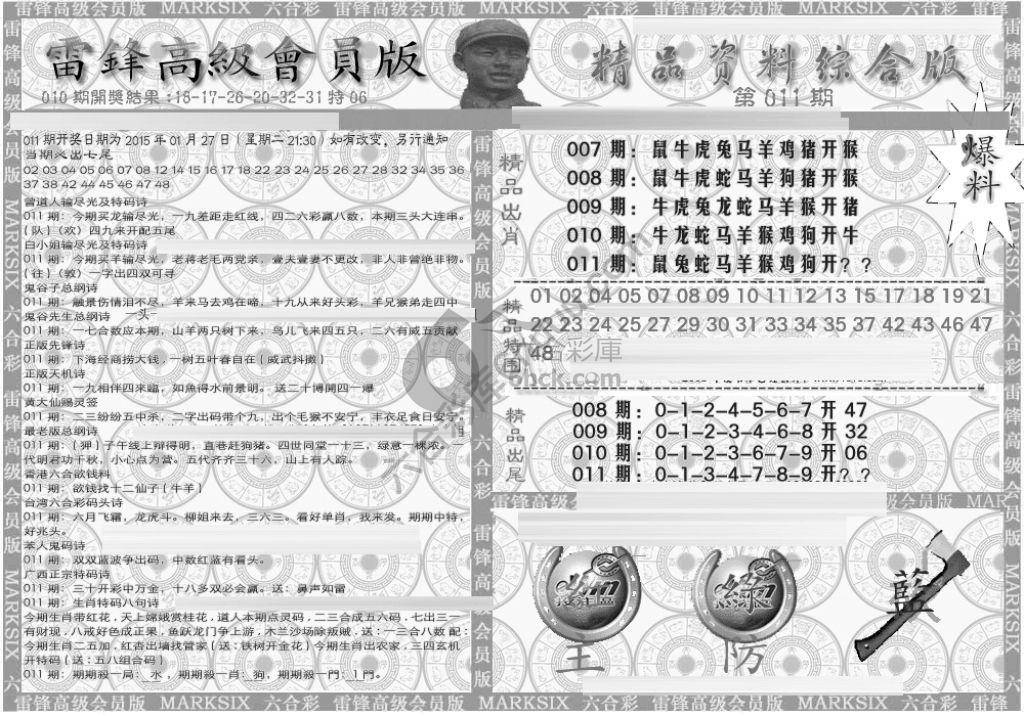 雷锋高级会员版 MARKSIX 六合彩 雷锋高级会员版 MARKSIX 六合彩 雷锋高级会员版 MARKSIX 六合彩 雷锋
雷鋒高級會員版
010期開獎結果:18-17-26-20-32-31特06
精品资料综合版
第011期
011期开奖日期为2015年01月27日(星期二21:30)如有改变,另行通知
当期必出七尾
02 03 04 05 06 07 08 12 14 15 16 17 18 22 23 24 25 26 27 28 32 34 35 36
37 38 42 44 45 46 47 48
曾道人输尽光及特码诗
011期:今期买龙输尽光,一九差距走红线,四二六彩赢八数,本期三头大连串。
(队)(欢)四九来开配五尾
白小姐输尽光及特码诗
011期:今期买羊输尽光,老蒋老毛两党亲,壹夫壹妻不更改,非人非曾绝非物。
(往)(敦)一字出四双可寻
鬼谷子总纲诗
011期:融景伤情泪不尽,羊来马去鸡在啼,十九从来好头彩,羊兄猴弟走四中
鬼谷先生总纲诗 一头
011期:一七合数应本期,山羊两只树下来,鸟儿飞来四五只,二六有威五贡献
正版先锋诗
011期:下海经商捞大钱,一树五叶春自在(威武抖擞)
正版天机诗
011期:一九相伴四来臨,如魚得水前景明。送二十博開四一爆
黄大仙赐灵签
011期:二三纷纷五中杀,二字出码带个九,出个毛猴不安宁,丰衣足食日安宁。
最老版总纲诗
011期:(狎)子午线上辩得明,直巷赶狗猪。四世同堂一十三,绿意一棵浓。一
代明君功千秋,小心点为营。五代齐齐三十六,山上有人踪。
香港六合欲钱料
011期:欲钱找十二仙子(牛羊)
台湾六合彩码头诗
011期:六月飞霜,龙虎斗。柳姐来去,三六三。看好单肖,我来发。期期中特,
好兆头。
苯人鬼码诗
011期:双双蓝波争出码,中数红蓝有看头。
广西正宗特码诗
011期:三十开彩中万金,十八多双必会赢。送:鼻声如雷
011期:生肖特码八句诗
今期生肖带红花,天上嫦娥赏桂花,道人本期点灵码,二三合成五六码,七出三一
有财现,八戒好色成正果,鱼跃龙门争上游,木兰沙场除叛贼,送:一三合八数 配:
今期生肖二五加,红杏出墙找管家(送:铁树开金花)今期生肖出农家,三四玄机
开特码(送:五八组合码)
011期:期期殺一局:水,期期殺一肖:狗,期期殺一門:1門。
精品出肖
007期:鼠牛虎兔马羊鸡猪开猴
008期:鼠牛虎蛇马羊狗猪开猴
009期:牛虎兔龙蛇马羊猴开猪
010期:牛龙蛇马羊猴鸡狗开牛
011期:鼠兔蛇马羊猴鸡狗开??
爆料
精品特围
01 02 04 05 07 08 09 10 11 12 13 14 15 16 17 18 19 21
22 23 24 25 27 29 30 31 33 34 35 37 38 39 42 43 46 47
48
精品出尾
008期:0-1-2-4-5-6-7开47
009期:0-1-2-3-4-6-8开32
010期:0-1-2-3-6-7-9开06
011期:0-1-3-4-7-8-9开??
雷锋高级
会员版 MARKSIX 六合彩
綠
主
防
藍
雷锋高级会员版 MARKSIX 六合彩 雷锋高级会员版 MARKSIX 六合彩 雷锋高级会员版 MARKSIX 六合彩 雷锋